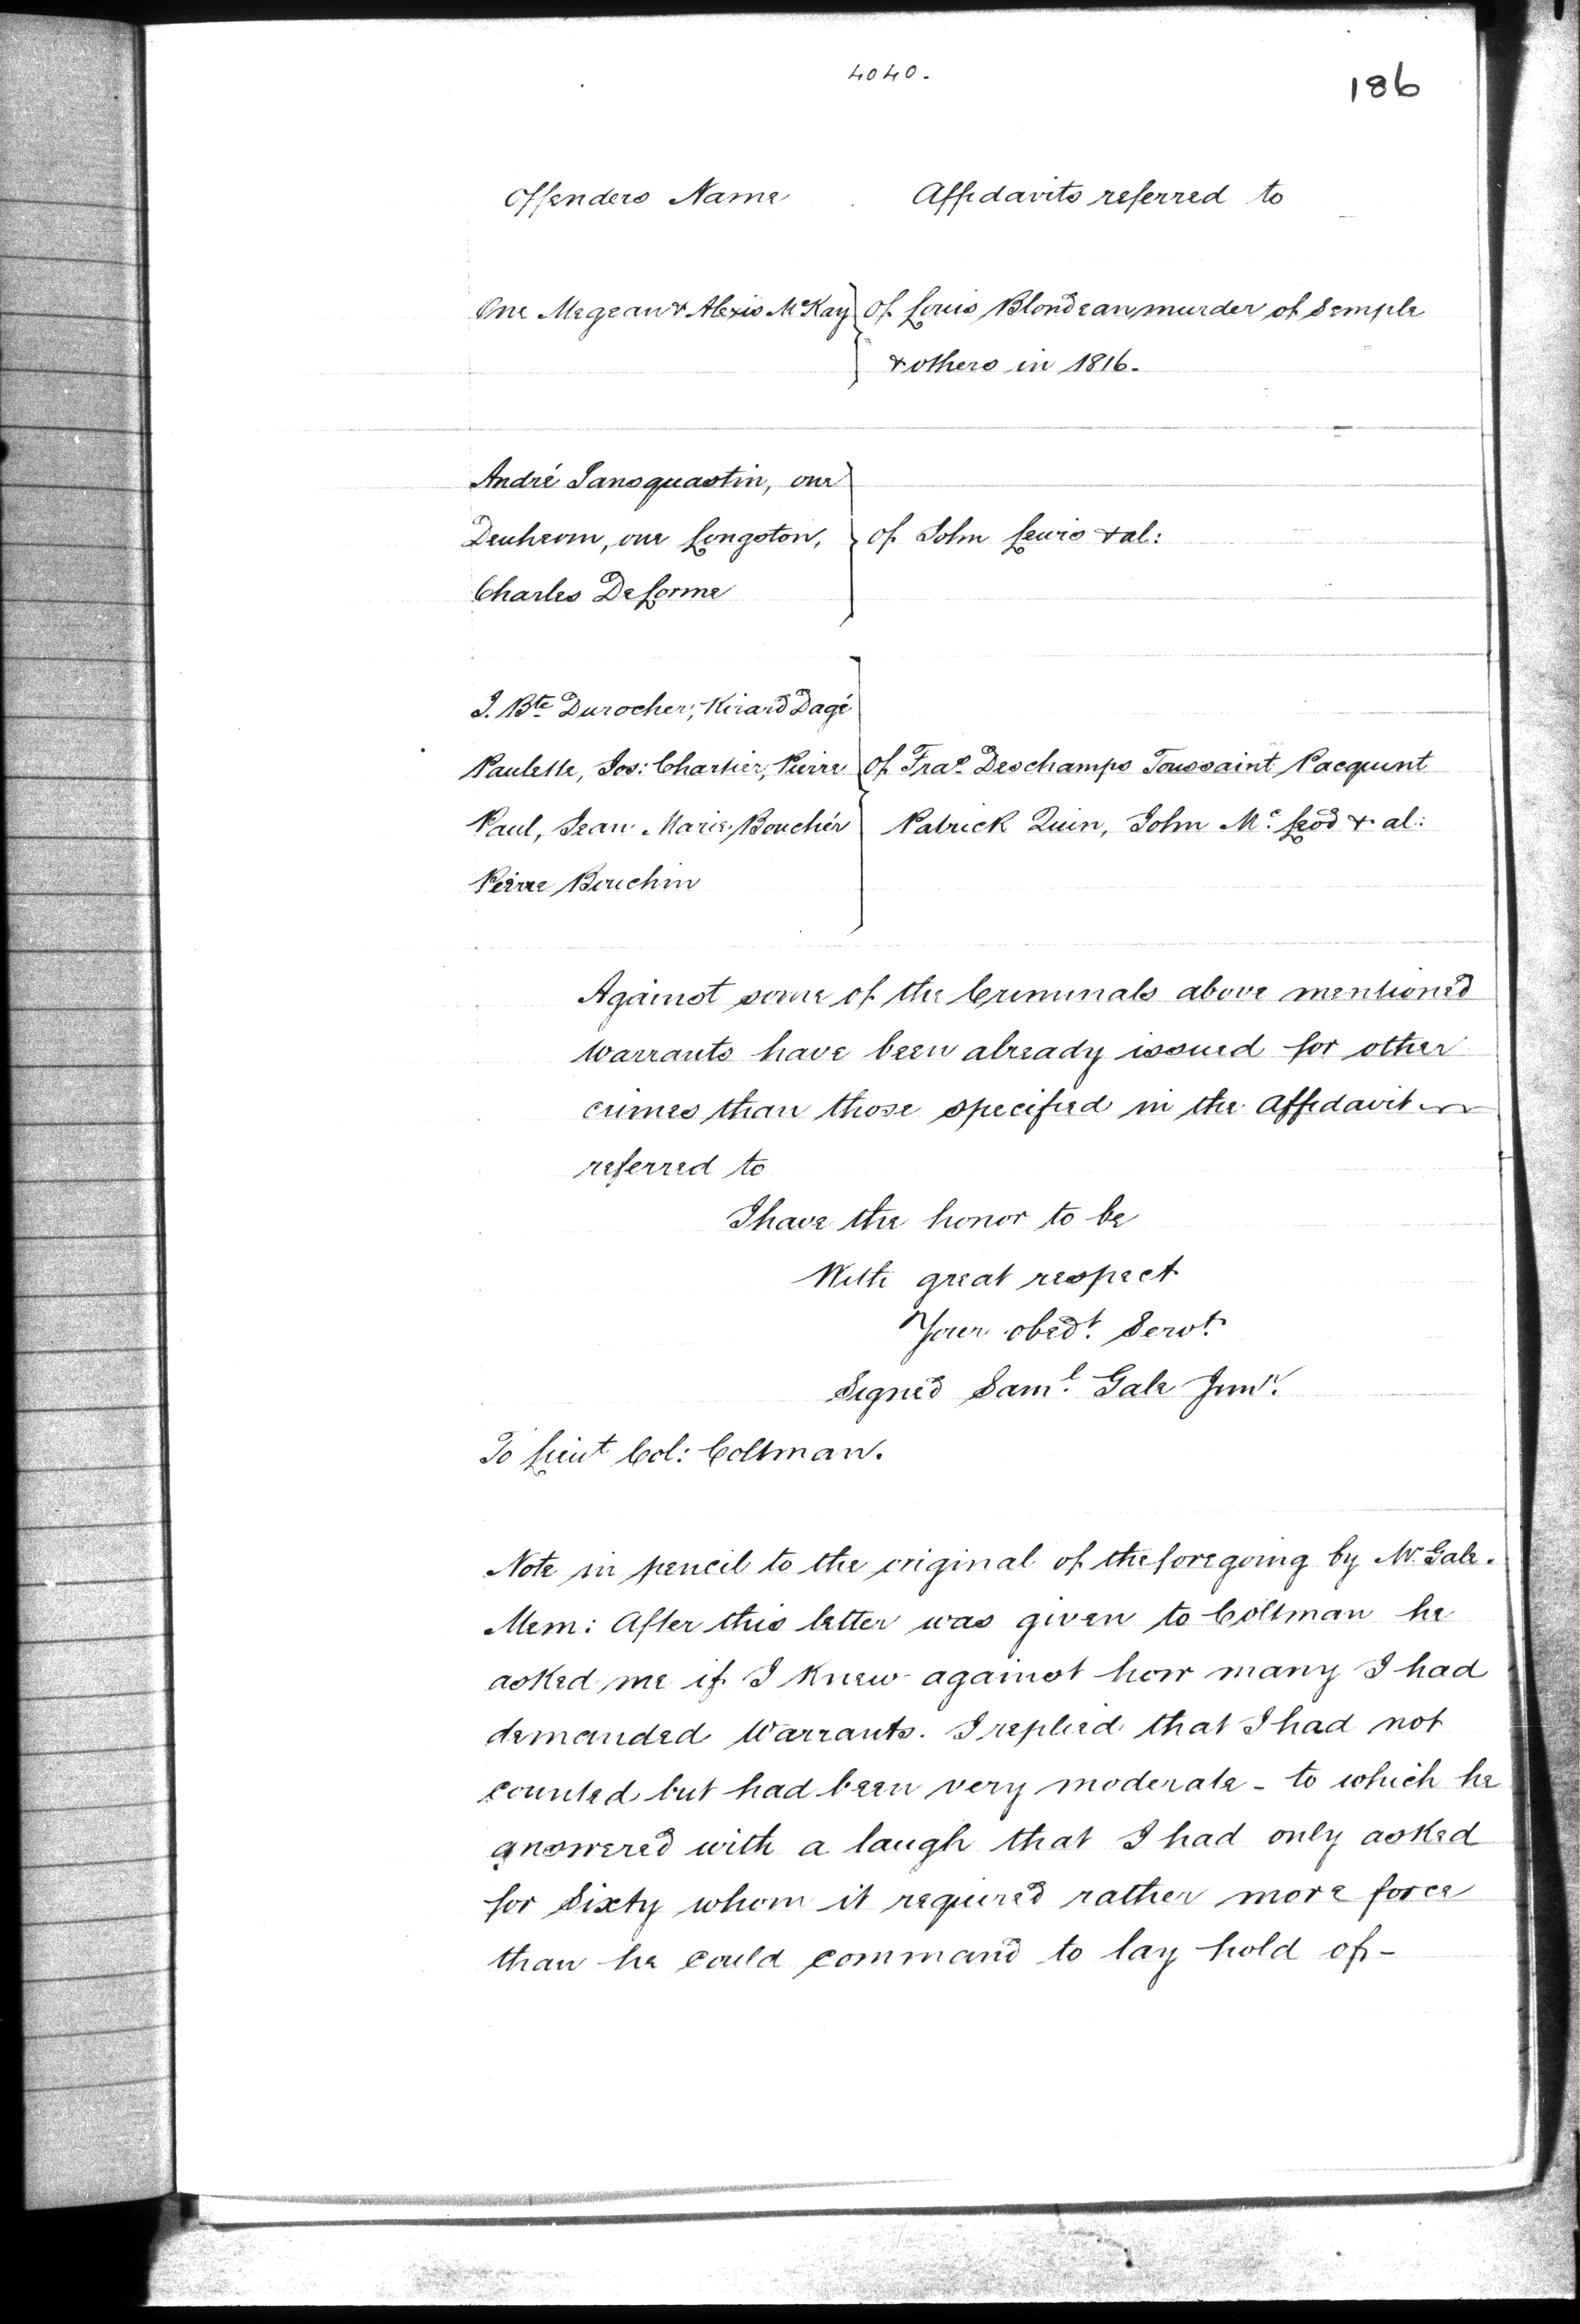 4040.
186
Offenders Name Affidavits referred to
One Megean & Alexis McKay } of Louis Blondeau, murder of Semple
& others in 1816.
André Sansquastin, one
Denheom, one Longston, } of John Lewis & al:
Charles DeLorme
J. Bte Durocher, Kirard Dagé
Paulette, Jos: Chartier, Pierre } of Fras Deschamps Toussaint Pacquint
Paul, Jean Marie Bouchér Patrick Quin, John Mc Leod & al:
Peirre Bouchin
Against some of the Criminals above mentioned
Warrants have been already issued for other
crimes than those specified in the affidavit
referred to
I have the honor to be
With great respect
Your obedt. Servt.
Signed Saml. Gale Junr.
To Lieut Col: Coltman.
Note in pencil to the original of the foregoing by Mr. Gale.
Mem: After this letter was given to Coltman he
asked me if I knew against how many I had
demanded Warrants. I replied that I had not
counted but had been very moderate - to which he
answered with a laugh that I had only asked
for Sixty whom it required rather more force
than he could command to lay hold of -